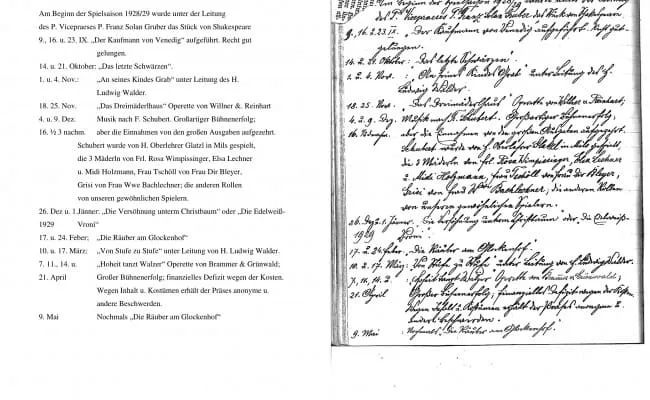 Am Beginn der Spielsaison 1928/29 wurde unter der Leitung
des P. Vicepraeses P. Franz Solan Gruber das Stück von Shakespeare
9., 16. u. 23. IX. „Der Kaufmann von Venedig“ aufgeführt. Recht gut
gelungen.
14. u. 21. Oktober: „Das letzte Schwärzen“.
1. u. 4. Nov.: „An seines Kindes Grab“ unter Leitung des H.
Ludwig Walder.
18. 25. Nov. „Das Dreimäderlhaus“ Operette von Willner & Reinhart
4. u. 9. Dez. Musik nach F. Schubert. Großartiger Bühnenerfolg;
16. ½ 3 nachm. aber die Einnahmen von den großen Ausgaben aufgezehrt.
Schubert wurde von H. Oberlehrer Glatzl in Mils gespielt,
die 3 Mäderln von Frl. Rosa Wimpissinger, Elsa Lechner
u. Midi Holzmann, Frau Tschöll von Frau Dir Bleyer,
Grisi von Frau Wwe Bachlechner; die anderen Rollen
von unseren gewöhnlichen Spielern.
26. Dez u. 1.Jänner: „Die Versöhnung unterm Christbaum“ oder „Die Edelweiß-
1929 Vroni“
17. u. 24. Feber; „Die Räuber am Glockenhof“
10. u. 17. März; „Von Stufe zu Stufe“ unter Leitung von H. Ludwig Walder.
7. 11., 14. u. „Hoheit tanzt Walzer“ Operette von Brammer & Grünwald;
21. April Großer Bühnenerfolg; finanzielles Defizit wegen der Kosten.
Wegen Inhalt u. Kostümen erhält der Präses anonyme u.
andere Beschwerden.
9. Mai Nochmals „Die Räuber am Glockenhof“
des P. Vicepraeses P. Franz Solan Gruber das Stück von Shakespeare
9. 16. u. 23. IX. „Der Kaufmann von Venedig“ aufgeführt. Recht gut
gelungen.
14. u. 21. Oktober: „Das letzte Schwärzen“.
1. u. 4. Nov. „An seines Kindes Grab“ unter Leitung des H.
Ludwig Walder.
18. 25. Nov. „Das Dreimäderlhaus“ Operette von Willner & Reinhart;
4. u. 9. Dez. Musik nach F. Schubert. Großartiger Bühnenerfolg;
16. aber die Einnahmen von den großen Ausgaben aufgezehrt.
Schubert wurde von H. Oberlehrer Glatzl in Mils gespielt,
die 3 Mäderln von Frl. Rosa Wimpissinger, Elsa Lechner
u. Midi Holzmann, Frau Tschöll von Frau Dir Bleyer,
Grisi von Frau Wwe Bachlechner; die anderen Rollen
von unseren gewöhnlichen Spielern.
26. Dez u. 1. Jänner: „Die Versöhnung unterm Christbaum“ oder „Die Edelweiß-
1929 Vroni“
17. u. 24. Feber. „Die Räuber am Glockenhof“
10. u. 17. März „Von Stufe zu Stufe“ unter Leitung von H. Ludwig Walder.
7., 11., 14. u. „Hoheit tanzt Walzer“ Operette von Brammer & Grünwald;
21. April Großer Bühnenerfolg; finanzielles Defizit wegen der Kosten.
Wegen Inhalt u. Kostümen erhält der Präses anonyme u.
andere Beschwerden.
9. Mai Nochmals „Die Räuber am Glockenhof“